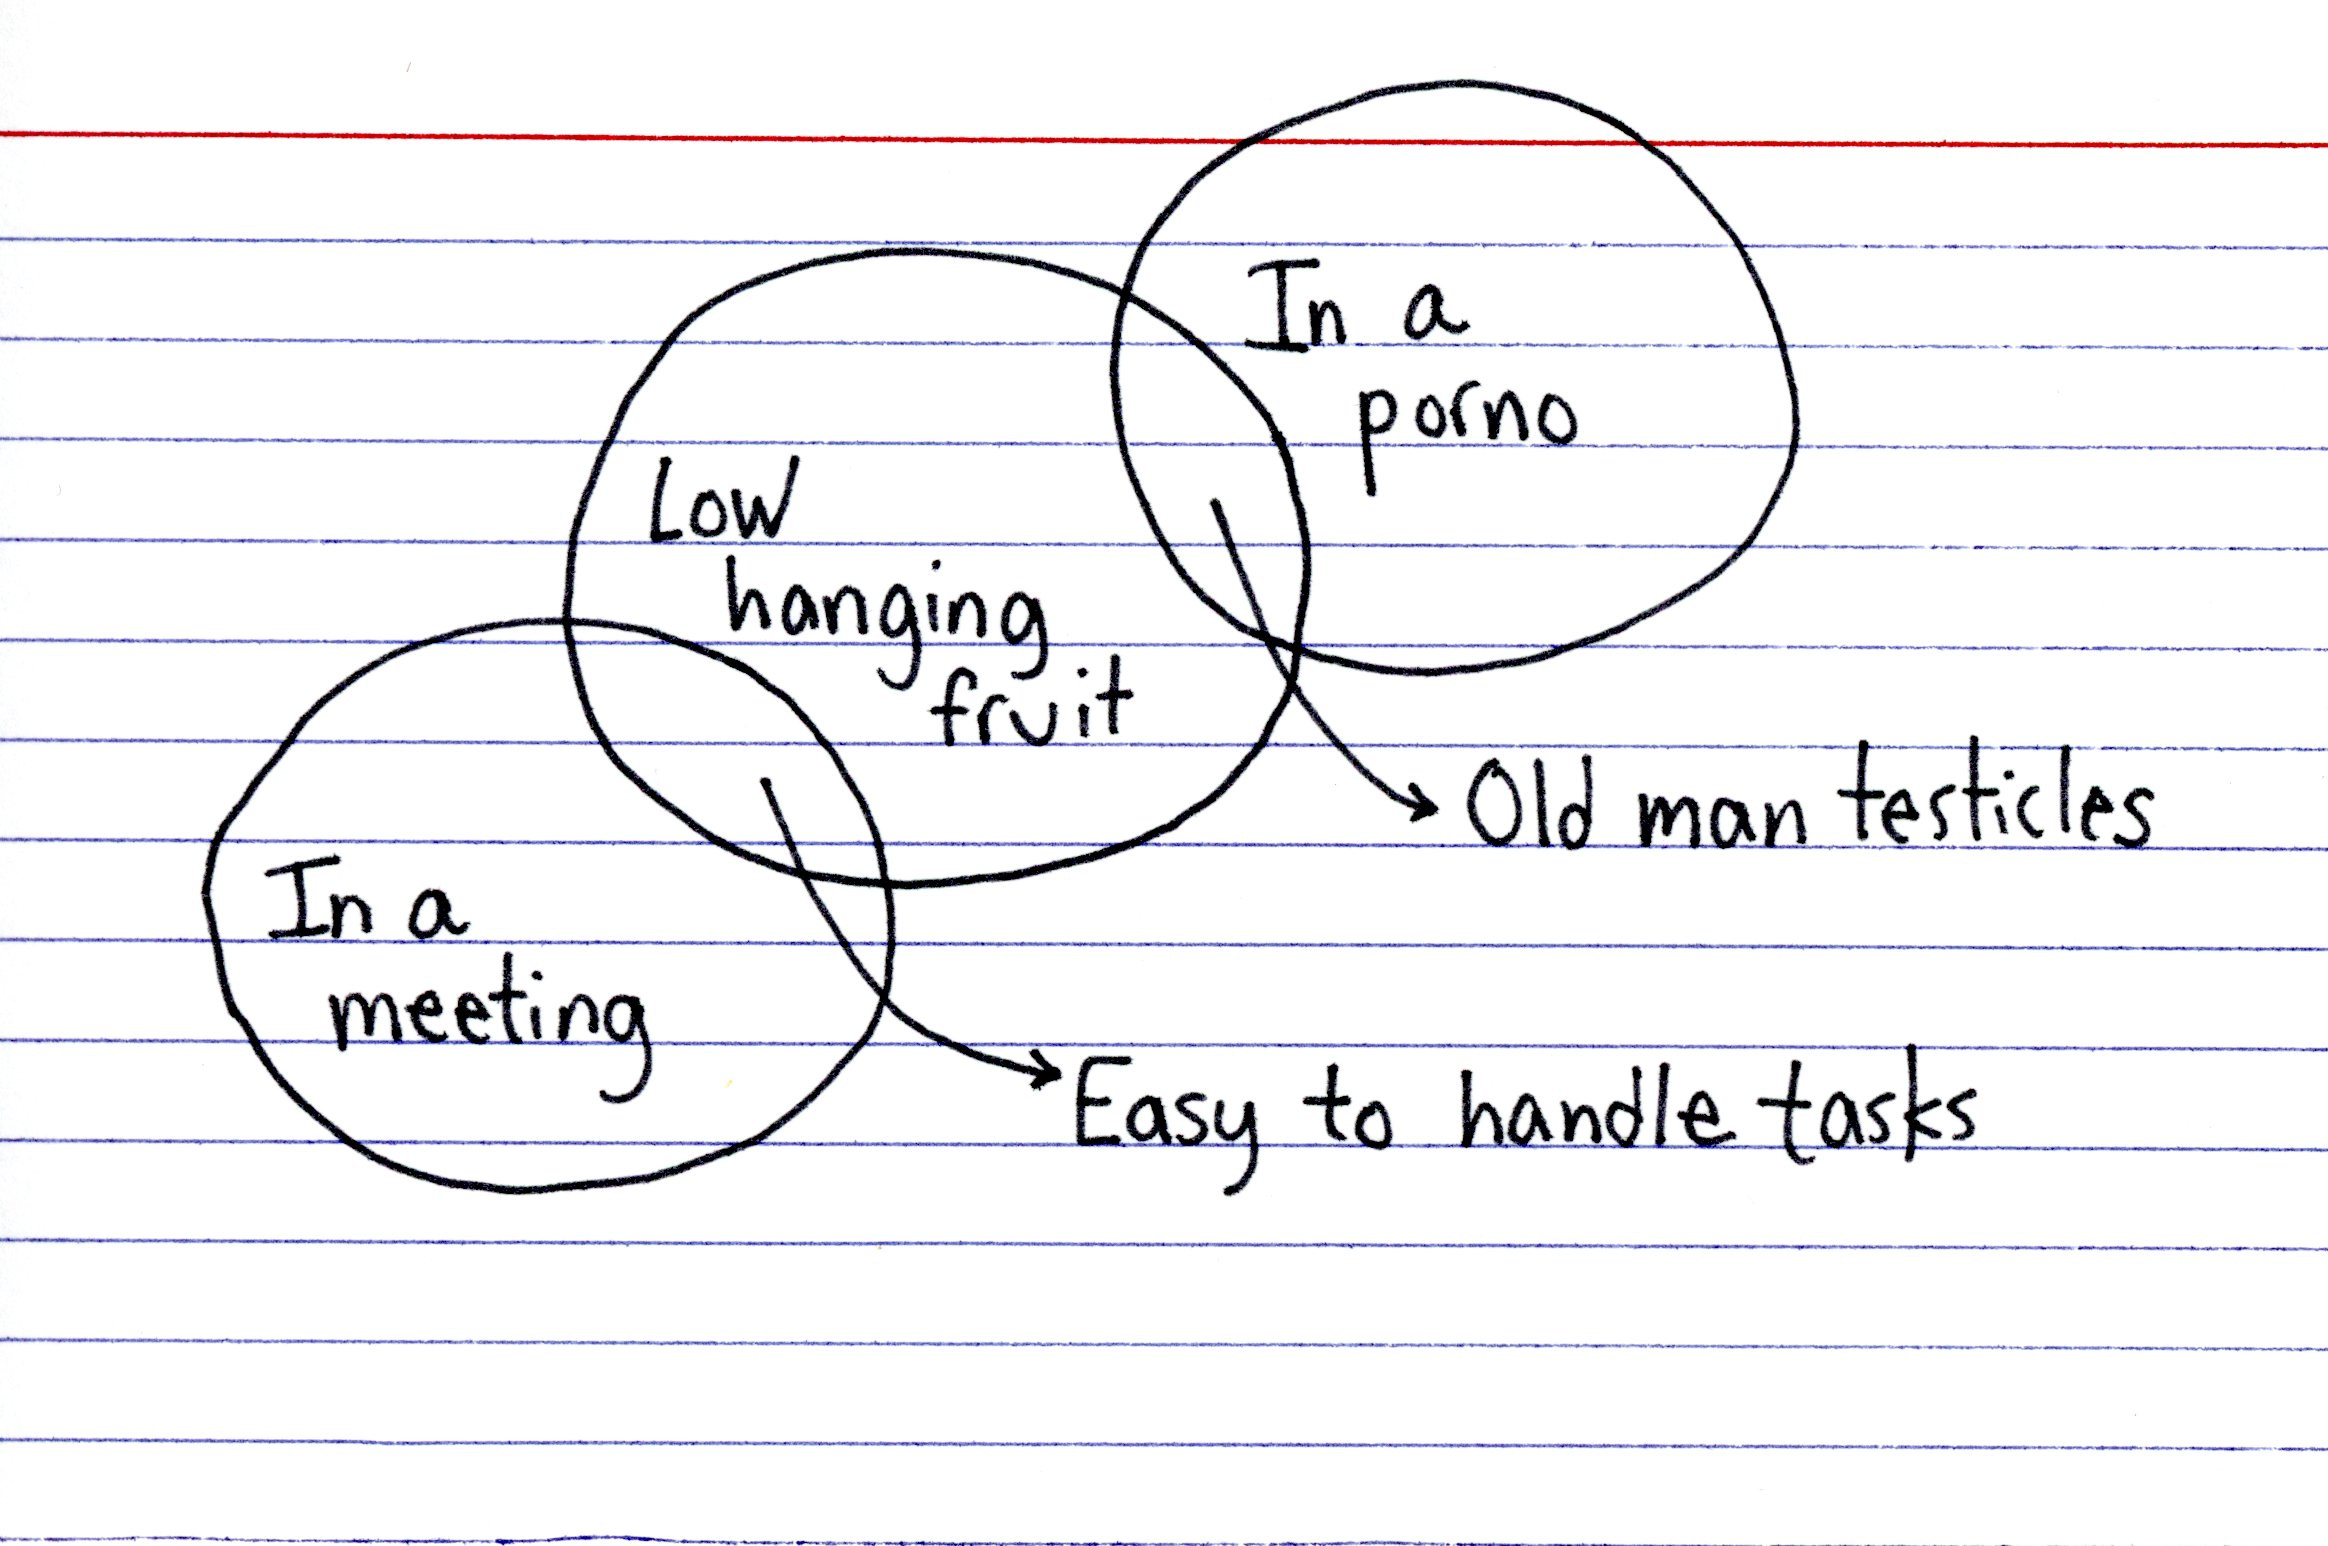 In a
porno
Low
hanging
fruit
Old man testicles
In a
meeting
Easy to handle tasks